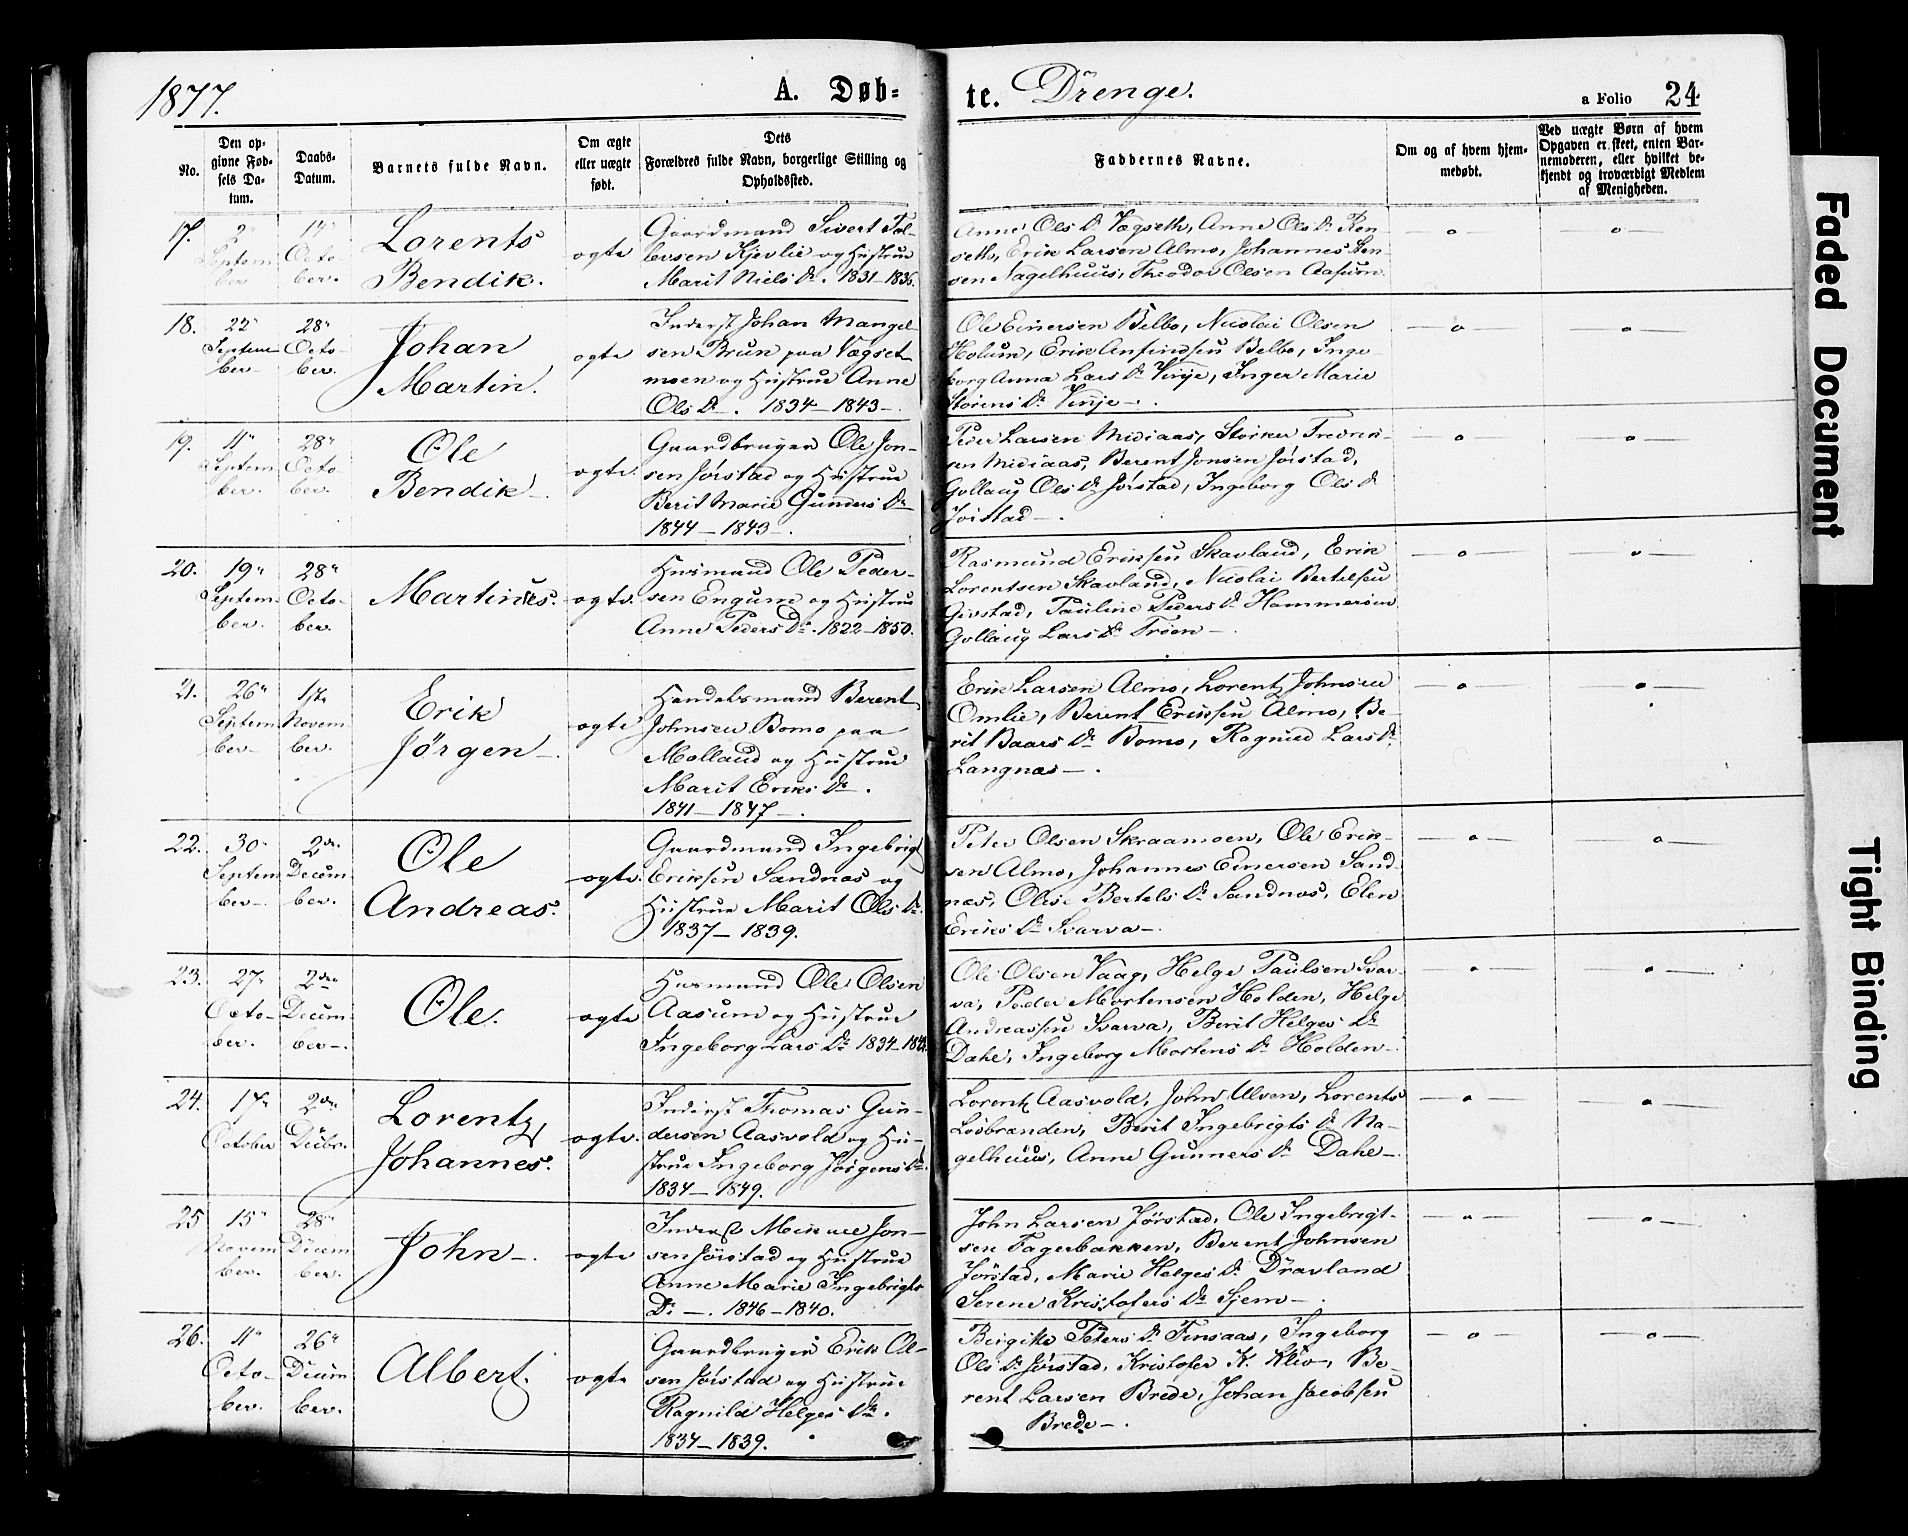 1877.
A. Døb=
te. Drenge.
a Folio 24
No.
Den op-
givne Fød-
sels Da-
tum.
Daabs-
Datum.
Barnets fulde Navn.
Om ægte
eller uægte
født.
Dets
Forældres fulde Navn, borgerlige Stilling og
Opholdssted.
Faddernes Navne.
Om og af hvem hjem-
medøbt.
Ved uægte Børn af hvem
Opgaven er skeet, enten Bar-
nemoderen, eller hvilket be-
kjendt og troværdigt Medlem
af Menigheden.
17.
2"
Septem
ber
14"
Octo-
ber.
Lorents
Bendik.
ægte
Gaardmand Sivert Tol-
levsen Kjevlie og Hustrue
Marit Niels Dr. 1831-1836.
Anne Ols Dr Vægseth, Anne Ols Dr Ren
seth, Erik Larsen Almo, Johannes Han
sen Nagelhuus, Theodor Olsen Aasum
—o— —o—
18.
22"
Septem
ber-
28"
Octo-
ber.
Johan
Martin.
ægte
Inderst Johan Mangel-
sen Brun paa Vægset-
moen og Hustrue Anne
Ols Dr -. 1834-1843-.
Ole Einersen Belbo, Nicolai Olsen
Holum, Erik Anfindsen Belbo, Inge-
borg Anna Lars Dr Vinje, Inger Marie
Vinje-.
—o— —o—
19.
11"
Septem-
ber.
28"
Octo-
ber.
Ole
Bendik-.
ægte.
Gaardbruger Ole Jon-
sen Jørstad og Hustrue
Berit Marie Gunders Dr
1844-1843-.
Peder Larsen Midiaas, Storker Fredrik-
sen Midiaas, Berent Jonsen Jørstad,
Gollaug Ols Dr Jørstad, Ingeborg Ols Dr
Jørstad-.
—o— —o—
20.
19"
Septem-
ber.
28"
Octo-
ber.
Martinus.
ægte.
Husmand Ole Peder-
sen Engum og Hustrue
Anne Peders Dr. 1822-1850.
Rasmund Eriksen Skavland, Erik
Lorentsen Skavland, Nicolai Bertelsen
Givstad, Pauline Peders Dr Hammersen
Gollaug Lars Dr Trøen-.
—o— —o—
21.
26"
Septem
ber-
1ste
Novem
ber.
Erik
Jørgen-.
ægte
Handelsmand Berent
Johnsen Bomo paa
Molland og Hustrue
Marit Eriks Dr.
1841-1847-.
Erik Larsen Almo, Lorentz Johnsen
Omlie, Berent Eriksen Almo, Be-
rit Baars Dr Bomo, Ragnild Lars Dr
Langnæs-.
—o— —o—
22.
30"
Septem
ber-.
2den
Decem
ber.
Ole
Andreas.
ægte.
Gaardmand Ingebrigt
Eriksen Sandnæs og
Hustrue Marit Ols Dr.
1837-1839.
Peter Olsen Skraamoen, Ole Erik-
sen Almo, Johannes Einersen Sand-
næs, Olise Bertels Dr Sandnæs, Elen
Eriks Dr Svarva-.
—o— —o—
23.
27"
Octo-
ber.
2den
Decem-
ber-.
Ole.
ægte
Husmand Ole Olsen
Aasum og Hustrue
Ingeborg Lars Dr 1834-
Ole Olsen Vaag, Helge Paulsen Svar-
va, Peder Mortensen Holden, Helge
Andreassen Svarva, Berit Helges Dr
Dahe, Ingeborg Mortens Dr Holden-.
—o— —o—
24.
17"
October
2den
Decbr.
Lorentz
Johannes.
ægte.
Inderst Thomas Gun-
dersen Aasvold og Hu-
strue Ingeborg Jørgens Dr.
1834-1849.
Lorentz Aasvold, John Ulven, Lorents
Løsbranden, Berit Ingebrigts Dr Na-
gelhuus, Anne Gunners Dr Dahe-.
—o— —o—
25
15"
Novem
ber.
28"
Decem
ber.
John-.
ægte
Inderst Mikael Jon-
sen Jørstad og Hustrue
Anne Marie Ingebrigts
Dr -. 1846-1840.
John Larsen Jørstad, Ole Ingebrigt-
sen Fagerbakken, Berent Johnsen
Jørstad, Marie Helges Dr Dravland
Serene Kristofers Dr Sjem-.
—o— —o—
26.
11"
Octo-
ber.
26"
Decem
ber.
Albert.
ægte
Gaardbruger Erik Ol-
sen Jørstad og Hustrue
Ragnild Helges Dr.
1834-1839.
Birgitte Peters Dr Finsaas, Ingeborg
Ols Dr Jørstad, Kristofer K. Klev, Be-
rent Larsen Brede, Johan Jacobsen
Brede-.
—o— —o—
Faded Document
Tight Binding